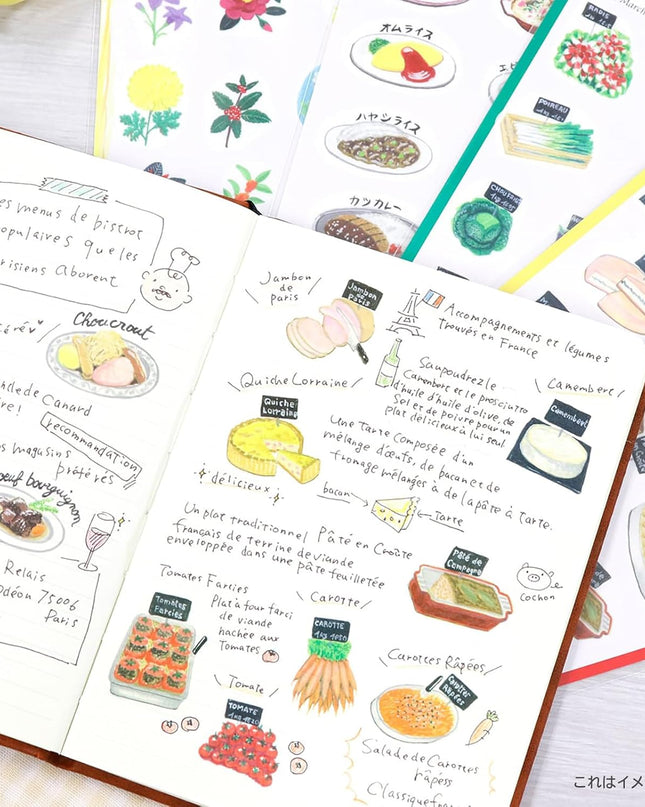 オムライス
ハヤシライス
カツカレー
RADIS
POIREAU
es menus de bistrot
opulaires que les
risiens aborent
Choucrout
de Canard
recommendation
magasins
préférés
oeuf bourguignon
Relais
Odéon 75006
Paris
Jambon
de
Paris
Jambon
de
Paris
Accompagnements et légumes
Trouvés en France
Saupoudrez le
Camembert et le prosciutto
d'huile d'huile d'olive, de
Sel et de poivre pour un
plat délicieux à lui seul
Camembert
Camembert
Quiche Lorraine
Quiche
Lorraine
délicieux
Une Tarte Composée d'un
mélange d'œufs, de bacon et de
fromage mélangés à de la pâte à Tarte.
bacon
Tarte
Un plat traditionnel Pâté en Croûte
français de terrine de viande
enveloppée dans une pâte feuilletée
Pâté de
Campagne
Cochon
Tomates Farcies
Tomates
Farcies
Plat à four farci
de viande
hachée aux
Tomates
Carotte
CAROTTE
Tomate
TOMATE
Carottes Râpées
Carottes
Râpées
Salade de Carottes
râpées
Classique
これはイメ